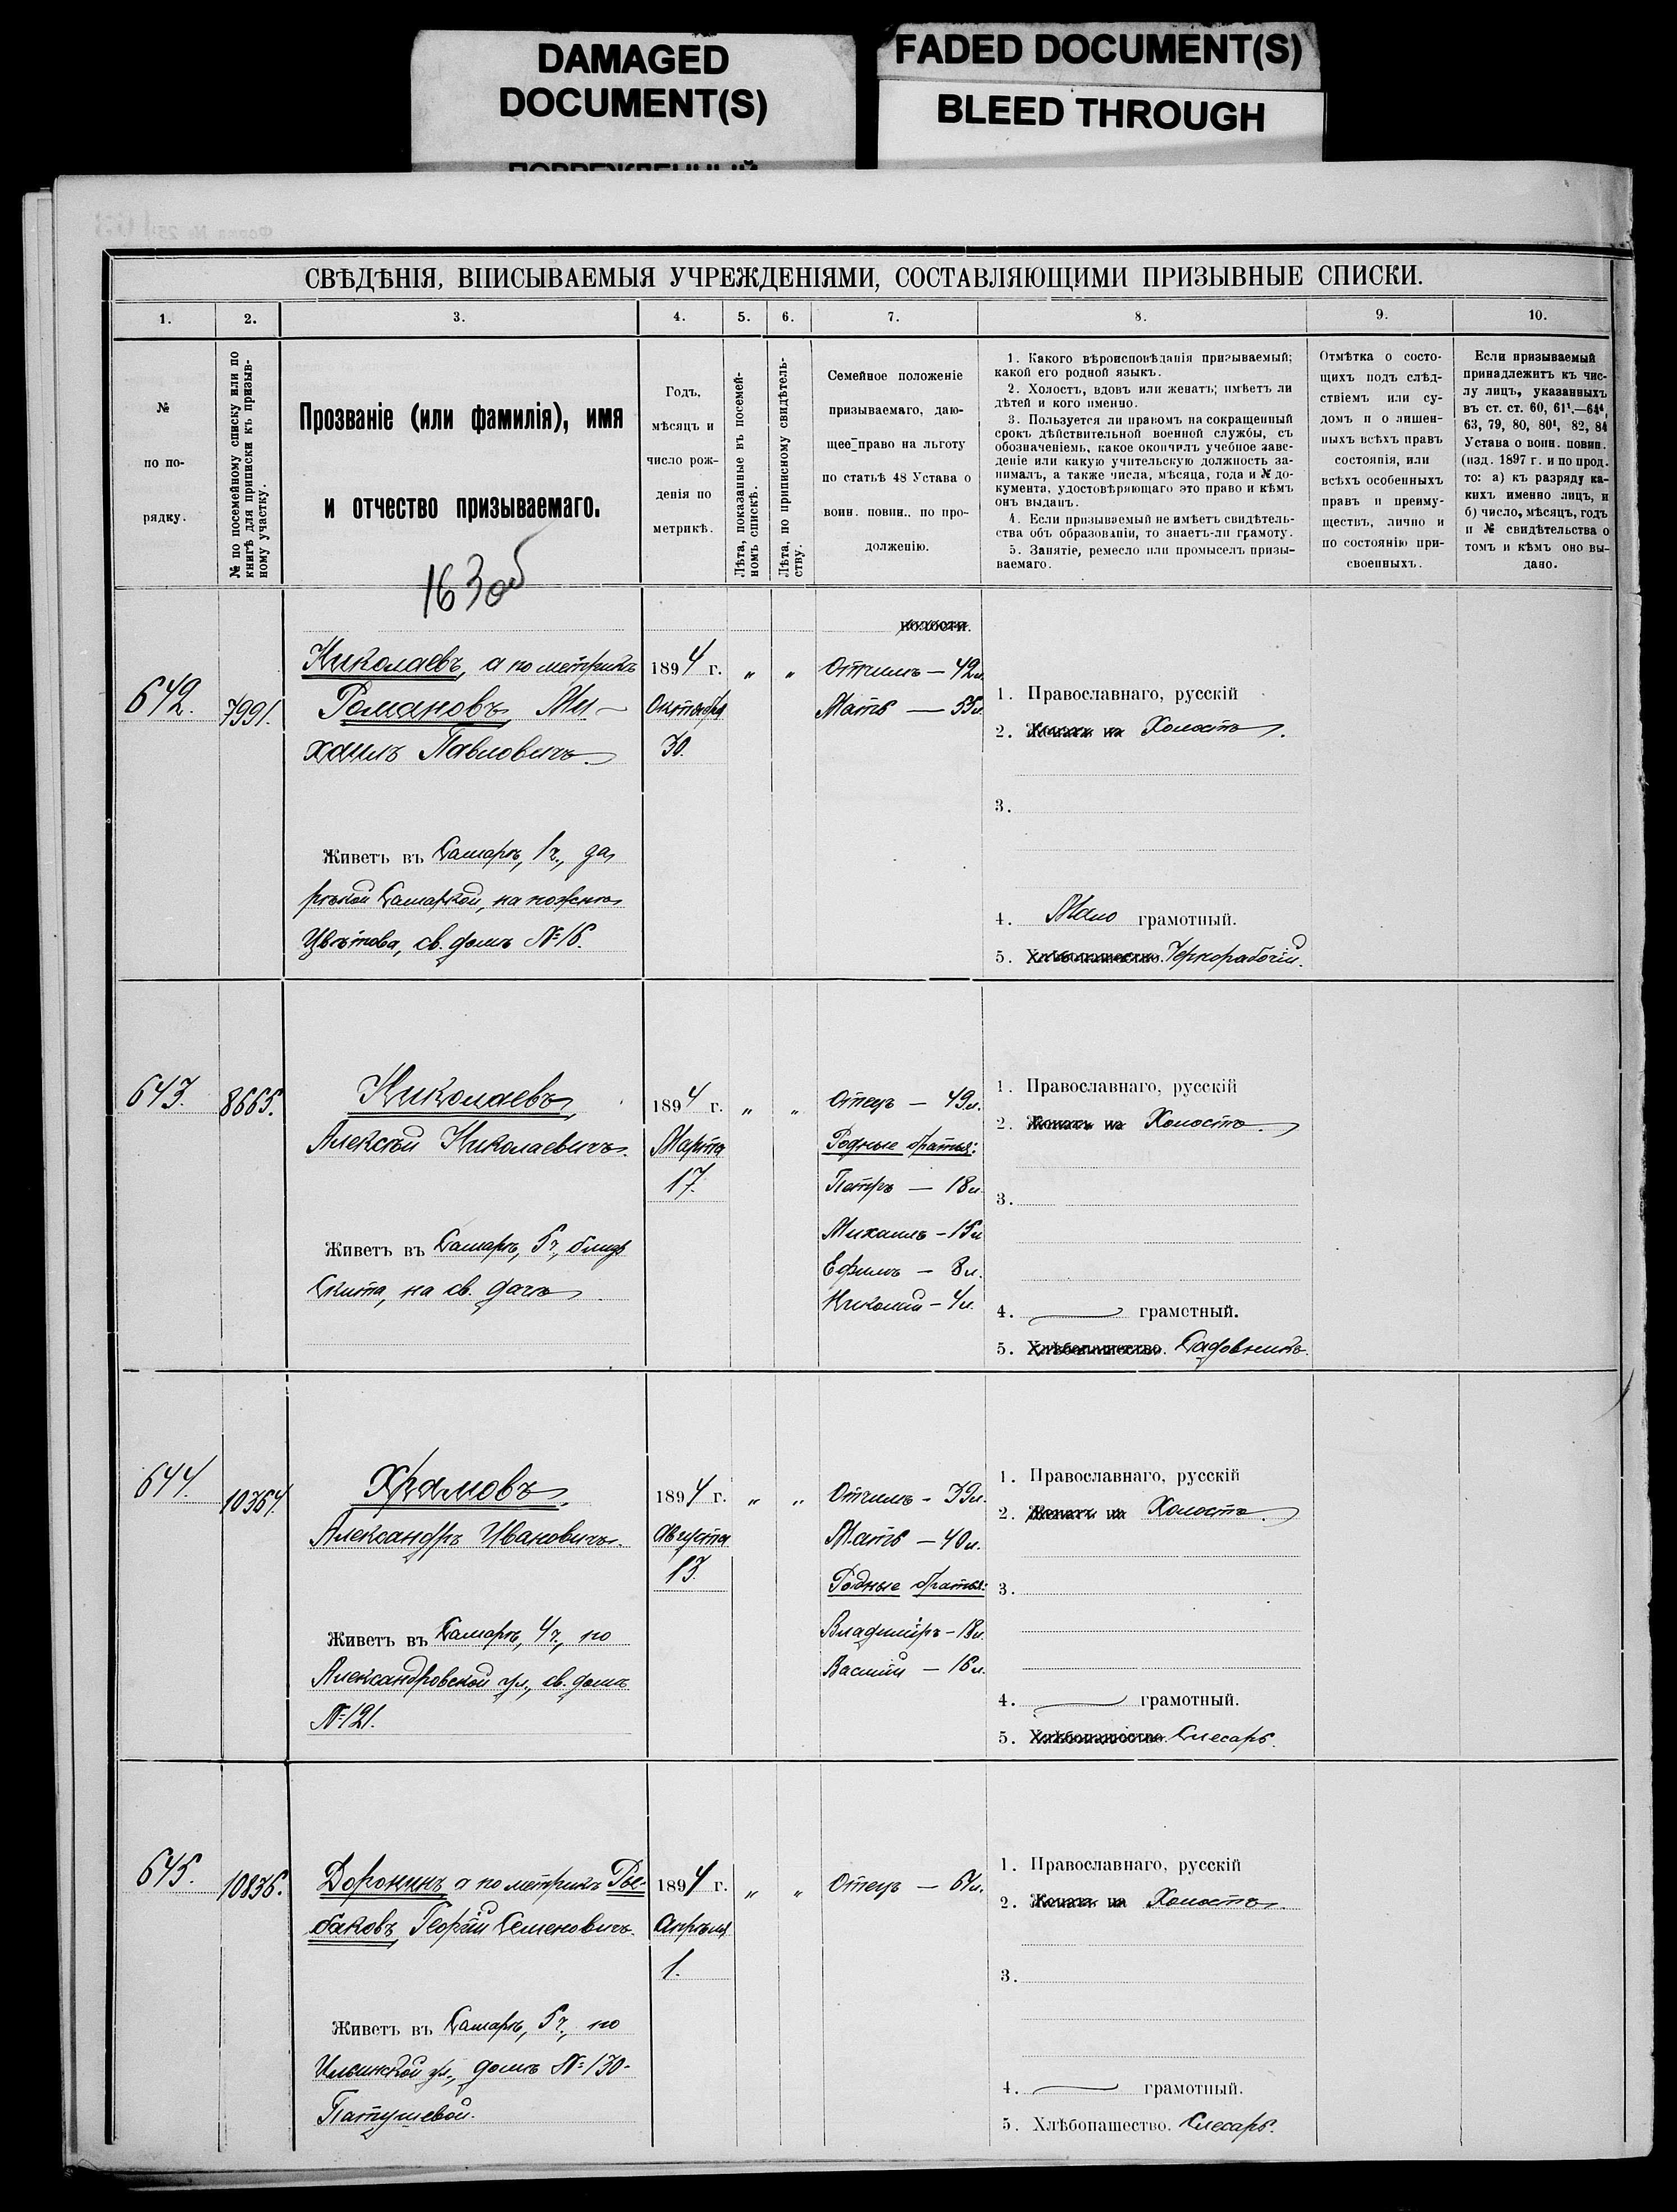 DAMAGED
DOCUMENT(S)
FADED DOCUMENT(S)
BLEED THROUGH
СВѢДѢНІЯ, ВПИСЫВАЕМЫЯ УЧРЕЖДЕНІЯМИ, СОСТАВЛЯЮЩИМИ ПРИЗЫВНЫЕ СПИСКИ.
1. 2. 3. 4. 5. 6. 7. 8. 9. 10.
№
по по-
рядку.
№ по посемейному списку или по
книгѣ для приписки къ призыв-
ному участку.
Прозваніе (или фамилія), имя
и отчество призываемаго.
Годъ,
мѣсяцъ и
число рож-
денія по
метрикѣ.
Лѣта, показанные въ посемей-
номъ спискѣ.
Лѣта, по приписному свидѣтель-
ству.
Семейное положеніе
призываемаго, даю-
щее право на льготу
по статьѣ 48 Устава о
воин. повин.. по про-
долженію.
1. Какого вѣроисповѣданія призываемый;
какой его родной языкъ.
2. Холостъ, вдовъ или женатъ; имѣетъ ли
дѣтей и кого именно.
3. Пользуется ли правомъ на сокращенный
срокъ дѣйствительной военной службы, съ
обозначеніемъ, какое окончилъ учебное заве-
деніе или какую учительскую должность за-
нималъ, а также числа, мѣсяца, года и № до-
кумента, удостовѣряющаго это право и кѣмъ
онъ выданъ.
4. Если призываемый не имѣетъ свидѣтель-
ства объ образованіи, то знаетъ-ли грамоту.
5. Занятіе, ремесло или промыселъ призы-
ваемаго.
Отмѣтка о состо-
щихъ подъ слѣд-
ствіемъ или су-
домъ и о лишен-
ныхъ всѣхъ правъ
состоянія, или
всѣхъ особенныхъ
правъ и преиму-
ществъ, лично и
по состоянію при-
своенныхъ.
Если призываемый
принадлежитъ къ чис-
лу лицъ, указанныхъ
въ ст. ст. 60, 61¹.—64⁴,
63, 79, 80, 80¹, 82, 84
Устава о воин. повин.
(изд. 1897 г. и по прод.
то: а) къ разряду ка-
кихъ именно лицъ, и
б) число, мѣсяцъ, годъ
и № свидѣтельства о
томъ и кѣмъ оно вы-
дано.
163об
642.
7991.
Николаевъ, а по метрикѣ
Романовъ, Ми-
хаилъ Павловичъ
Живетъ въ Самарѣ, 1ч., за
рѣкой Самаркой, на
Цвѣтова, св. домъ № 16.
1894 г.
Октября
30.
" "
волости.
Отчимъ — 42л.
Мать — 55л.
1. Православнаго, русскій
2. Женатъ на Холостъ.
3.
4. Мало грамотный.
5. Хлѣбопашество. Чернорабочій.
643.
8665.
Николаевъ,
Алексѣй Николаевичъ.
Живетъ въ Самарѣ, 5ч., близъ
Скита, на св. дачѣ
1894 г.
Марта
17.
" "
Отецъ — 49л.
Родные братья:
Петръ — 18л.
Михаилъ — 15л.
Ефимъ — 8л.
Николай — 4л.
1. Православнаго, русскій
2. Женатъ на Холостъ.
3.
4. грамотный.
5. Хлѣбопашество. Садовникъ.
644.
10364.
Храмовъ,
Александръ Ивановичъ.
Живетъ въ Самарѣ, 4ч., по
Александровской ул., св. домъ
№ 121.
1894 г.
Августа
13.
" "
Отчимъ - 39л.
Мать — 40л.
Родные братья:
Владиміръ — 18л.
Василій — 16л.
1. Православнаго, русскій
2. Женатъ на Холостъ.
3.
4. грамотный.
5. Хлѣбопашество. Слесарь.
645.
10836.
Доронинъ а по метрикѣ Ры-
баковъ, Георгій Семеновичъ.
Живетъ въ Самарѣ, 5ч., по
Ильинской ул., домъ № 130-
Патушевой.
1894 г.
Апрѣля
1.
" "
Отецъ —
1. Православнаго, русскій
2. Женатъ на Холостъ.
3.
4. грамотный.
5. Хлѣбопашество. Слесарь.